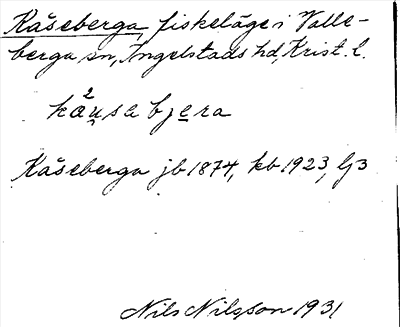 Kåseberga, fiskeläge i Valle-
berga sn, Ingelstads hd, Krist. l.
kåusabjera
Kåseberga jb 1874, kb 1923, lj 3
Nils Nilsson 1931